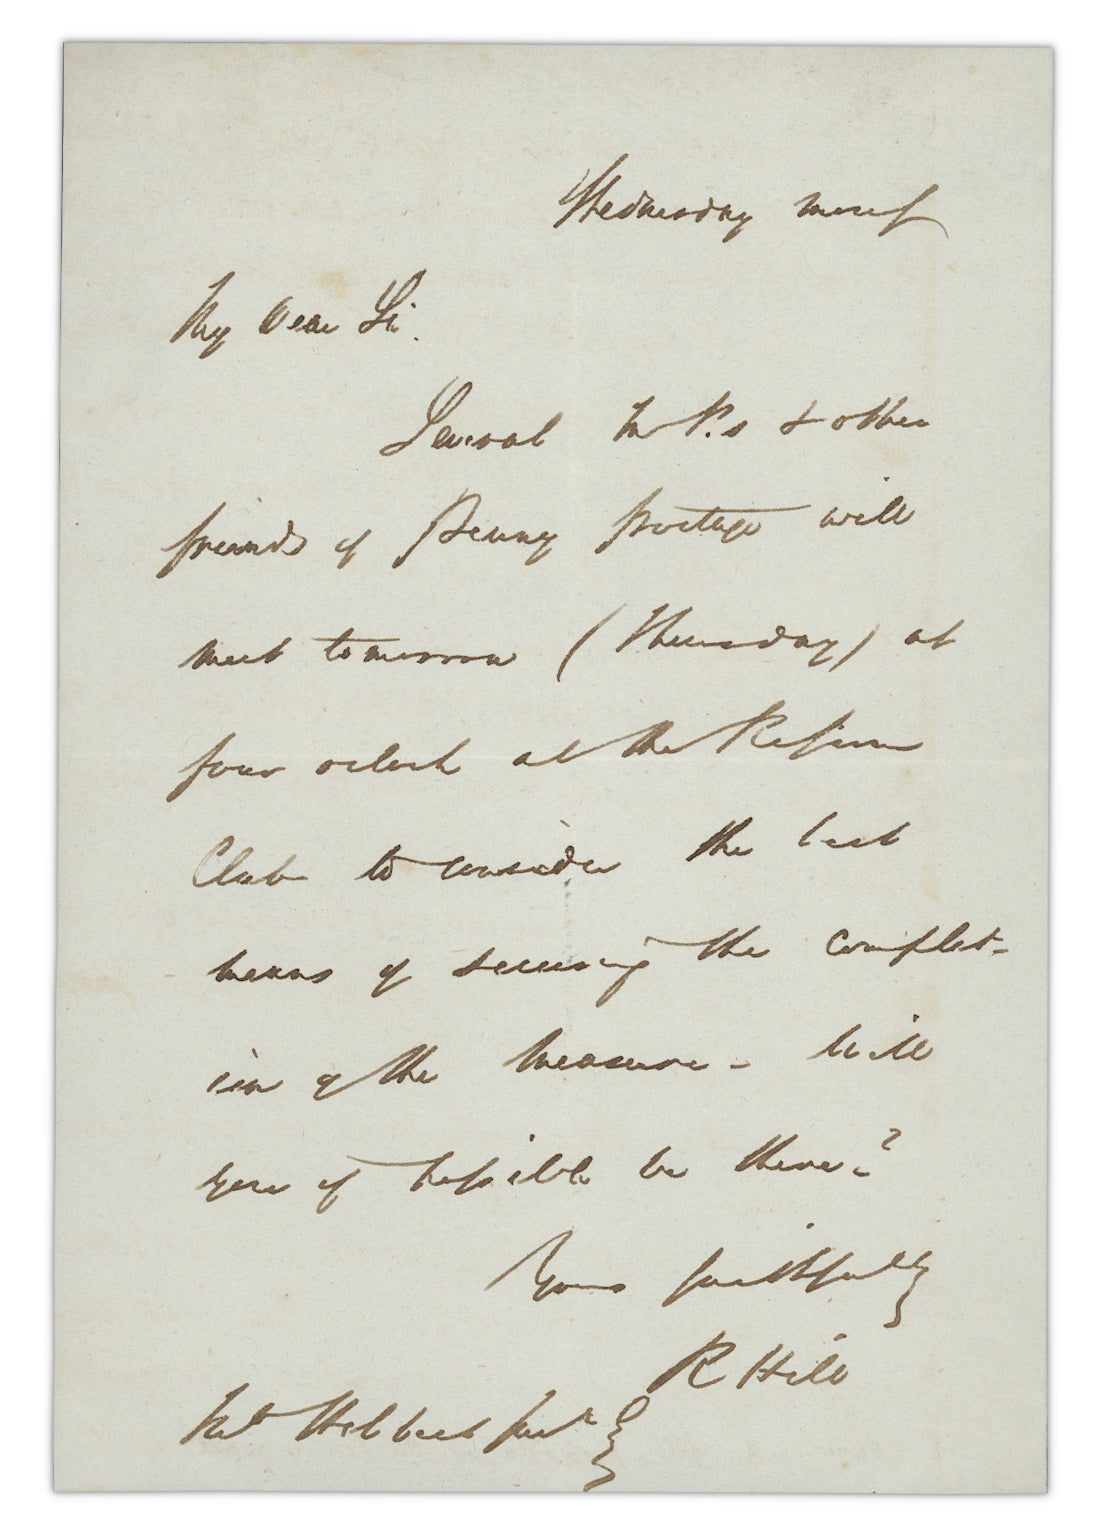 Wednesday morng
My Dear Sir.
Several M P.s & other
friends of Penny postage will
meet tomorrow (Thursday) at
four oclock at the Reform
Club to consider the best
means of securing the complet-
ion of the measure - Will
you if possible be there?
Yours faithfully
R Hill